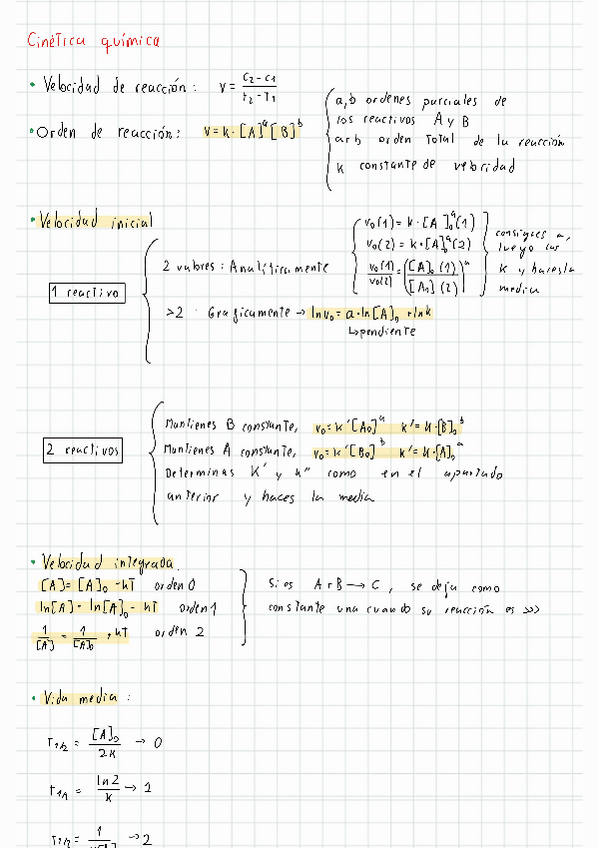 Cinética química
• Velocidad de reacción: v = (C₂-C₁)/(T₂-T₁)
• Orden de reacción: v = k·[A]ᵃ[B]ᵇ
a,b ordenes parciales de
los reactivos A y B
a+b orden total de la reacción
k constante de velocidad
• Velocidad inicial
1 reactivo
2 valores: Analíticamente
v₀(1) = k·[A]₀ᵃ(1)
v₀(2) = k·[A]₀ᵃ(2)
v₀(1)/v₀(2) = ([A]₀(1)/[A]₀(2))ᵃ
consigues a,
luego las
k y haces la
media
>2 · Graficamente → ln v₀ = a·ln[A]₀ + ln k
↳ pendiente
2 reactivos
Mantienes B constante, v₀ = k'[A₀]ᵃ k' = k·[B]₀ᵇ
Mantienes A constante, v₀ = k'[B₀]ᵇ k' = k·[A]₀ᵃ
Determinas k' y k'' como en el apartado
anterior y haces la media
• Velocidad integrada
[A] = [A]₀ - kT orden 0
ln[A] = ln[A]₀ - kT orden 1
1/[A] = 1/[A]₀ + kT orden 2
Si es A+B → C, se deja como
constante una cuando su reacción es >>>
• Vida media:
T₁/₂ = [A]₀/2k → 0
T₁/₂ = ln2/k → 1
T₁/₂ = 1 → 2